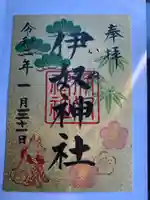 奉拝
伊奴神社
令和二年一月三十一日